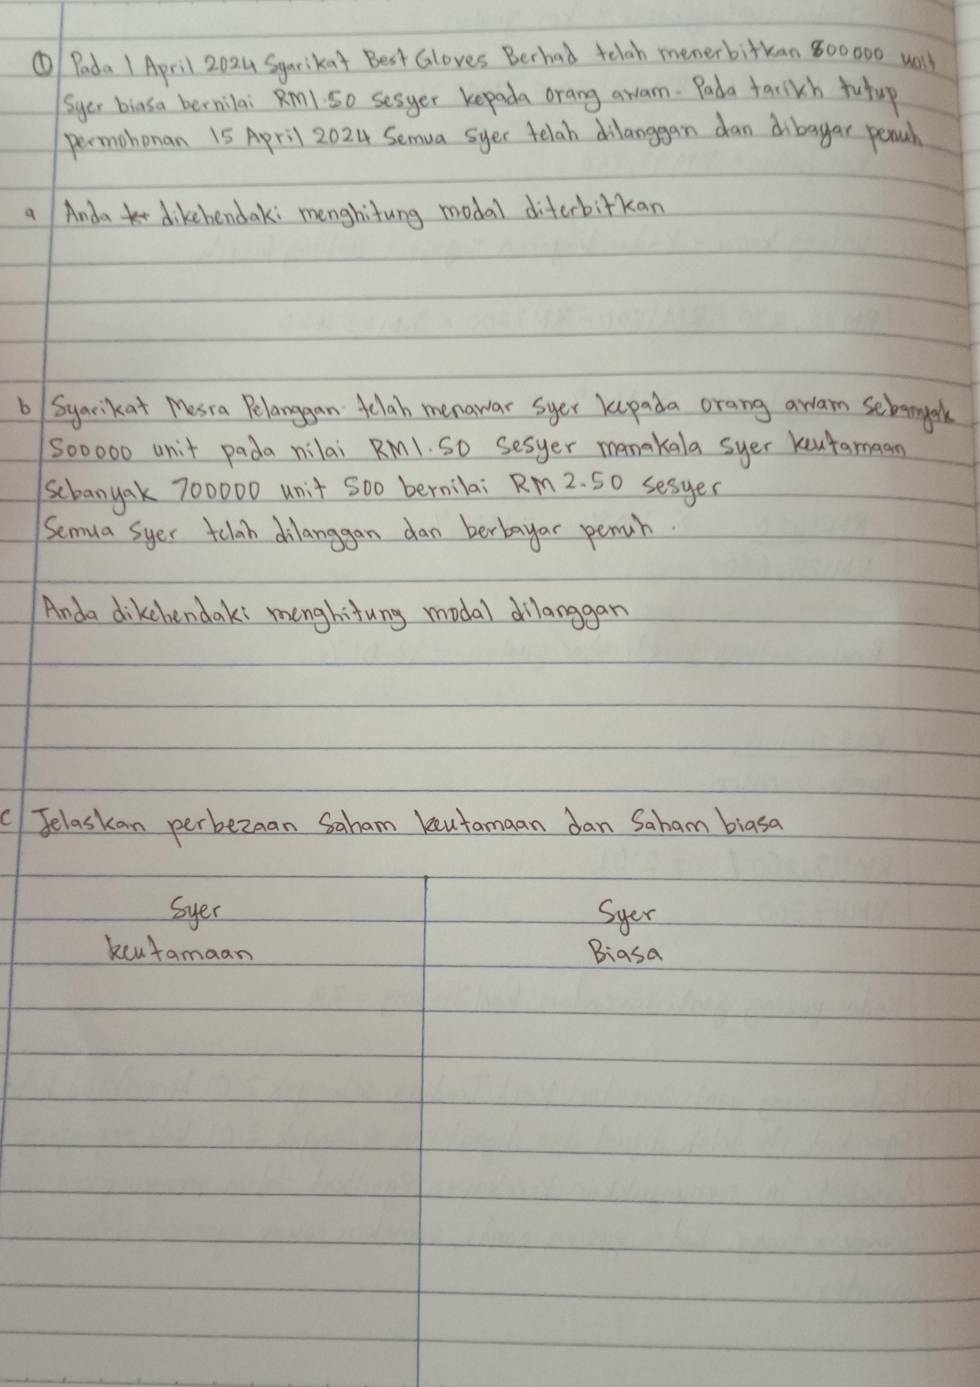 ① Pada 1 April 2024 Syarikat Best Gloves Berhad telah menerbitkan 800 000 unit
Syer biasa bernilai RM1.50 sesyer kepada orang awam. Pada tarikh tutup
permohonan 15 April 2024 Semua syer telah dilanggan dan dibayar penuh
a Anda dikehendaki menghitung modal diterbitkan
b Syarikat Mesra Pelanggan telah menawar syer kepada orang awam Sebanyak
500000 unit pada nilai RM1.50 sesyer manakala syer keutamaan
Sebanyak 700000 unit 500 bernilai RM 2.50 sesyer
Semua Syer telah dilanggan dan berbayar penuh.
Anda dikehendaki menghitung modal dilanggan
c Jelaskan perbezaan Saham keutamaan dan Saham biasa
Syer Syer
keutamaan Biasa